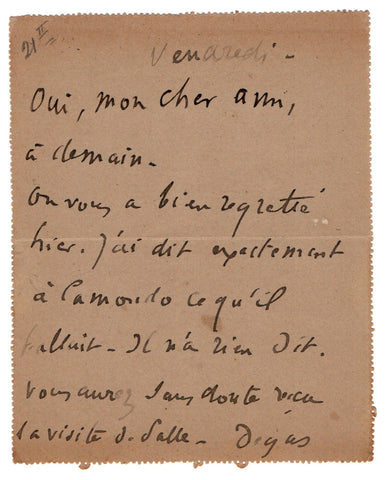 21 II
Vendredi -
Oui, mon cher ami,
à demain -
on vous a bien regretté
hier. J'ai dit exactement
à Camondo ce qu'il
fallait - Il n'a rien dit.
Vous aurez sans doute reçu
la visite de Salle - Degas